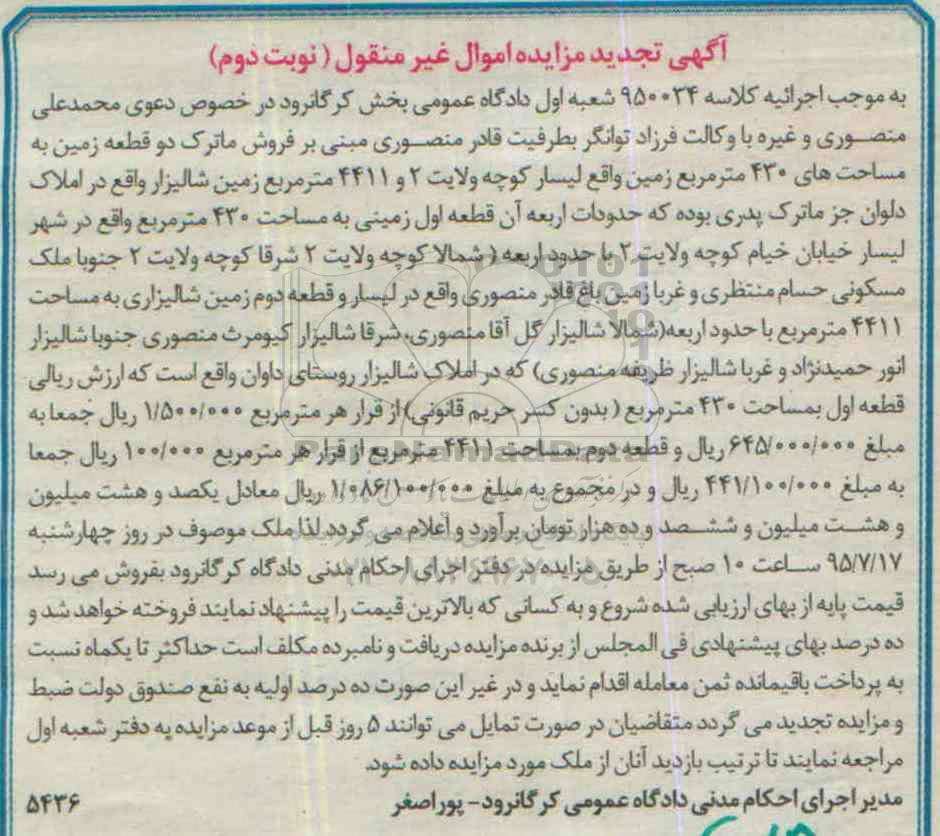 آگهی تجدید مزایده اموال غیر منقول ( نوبت دوم)
به موجب اجرائیه کلاسه ۹۵۰۰۳۴ شعبه اول دادگاه عمومی بخش کرگانرود در خصوص دعوی محمدعلی
منصـــوری و غیره با وکالت فرزاد توانگر بطرفیت قادر منصـــوری مبنی بر فروش ماترک دو قطعه زمین به
مساحت های ۴۳۰ مترمربع زمین واقع لیسار کوچه ولایت ۲ و ۴۴۱۱ مترمربع زمین شالیزار واقع در املاک
دلوان جز ماترک پدری بوده که حدودات اربعه آن قطعه اول زمینی به مساحت ۴۳۰ مترمربع واقع در شهر
لیسار خیابان خیام کوچه ولایت ۲ با حدود اربعه ( شمالا کوچه ولایت ۲ شرقا کوچه ولایت ۲ جنوبا ملک
مسکونی حسام منتظری و غربا زمین باغ قادر منصوری واقع در لیسار و قطعه دوم زمین شالیزاری به مساحت
۴۴۱۱ مترمربع با حدود اربعه(شمالا شالیزار گل آقا منصوری، شرقا شالیزار کیومرث منصوری جنوبا شالیزار
انور حمیدنژاد و غربا شالیزار ظریفه منصوری) که در املاک شالیزار روستای داوان واقع است که ارزش ریالی
قطعه اول بمساحت ۴۳۰ مترمربع ( بدون کسر حریم قانونی) از قرار هر مترمربع ۱/۵۰۰/۰۰۰ ریال جمعا به
مبلغ ۶۴۵/۰۰۰/۰۰۰ ریال و قطعه دوم بمساحت ۴۴۱۱ مترمربع از قرار هر مترمربع ۱۰۰/۰۰۰ ریال جمعا
به مبلغ ۴۴۱/۱۰۰/۰۰۰ ریال و در مجموع به مبلغ ۱/۰۸۶/۱۰۰/۰۰۰ ریال معادل یکصد و هشت میلیون
و هشـــت میلیون و ششـــصد و ده هزار تومان برآورد و اعلام می گردد لذا ملک موصوف در روز چهارشنبه
۹۵/۷/۱۷ ســـاعت ۱۰ صبح از طریق مزایده در دفتر اجرای احکام مدنی دادگاه کرگانرود بفروش می رسد
قیمت پایه از بهای ارزیابی شده شروع و به کسانی که بالاترین قیمت را پیشنهاد نمایند فروخته خواهد شد و
ده درصد بهای پیشنهادی فی المجلس از برنده مزایده دریافت و نامبرده مکلف است حداکثر تا یکماه نسبت
به پرداخت باقیمانده ثمن معامله اقدام نماید و در غیر این صورت ده درصد اولیه به نفع صندوق دولت ضبط
و مزایده تجدید می گردد متقاضیان در صورت تمایل می توانند ۵ روز قبل از موعد مزایده به دفتر شعبه اول
مراجعه نمایند تا ترتیب بازدید آنان از ملک مورد مزایده داده شود.
مدیر اجرای احکام مدنی دادگاه عمومی کرگانرود- پوراصغر
۵۴۳۶